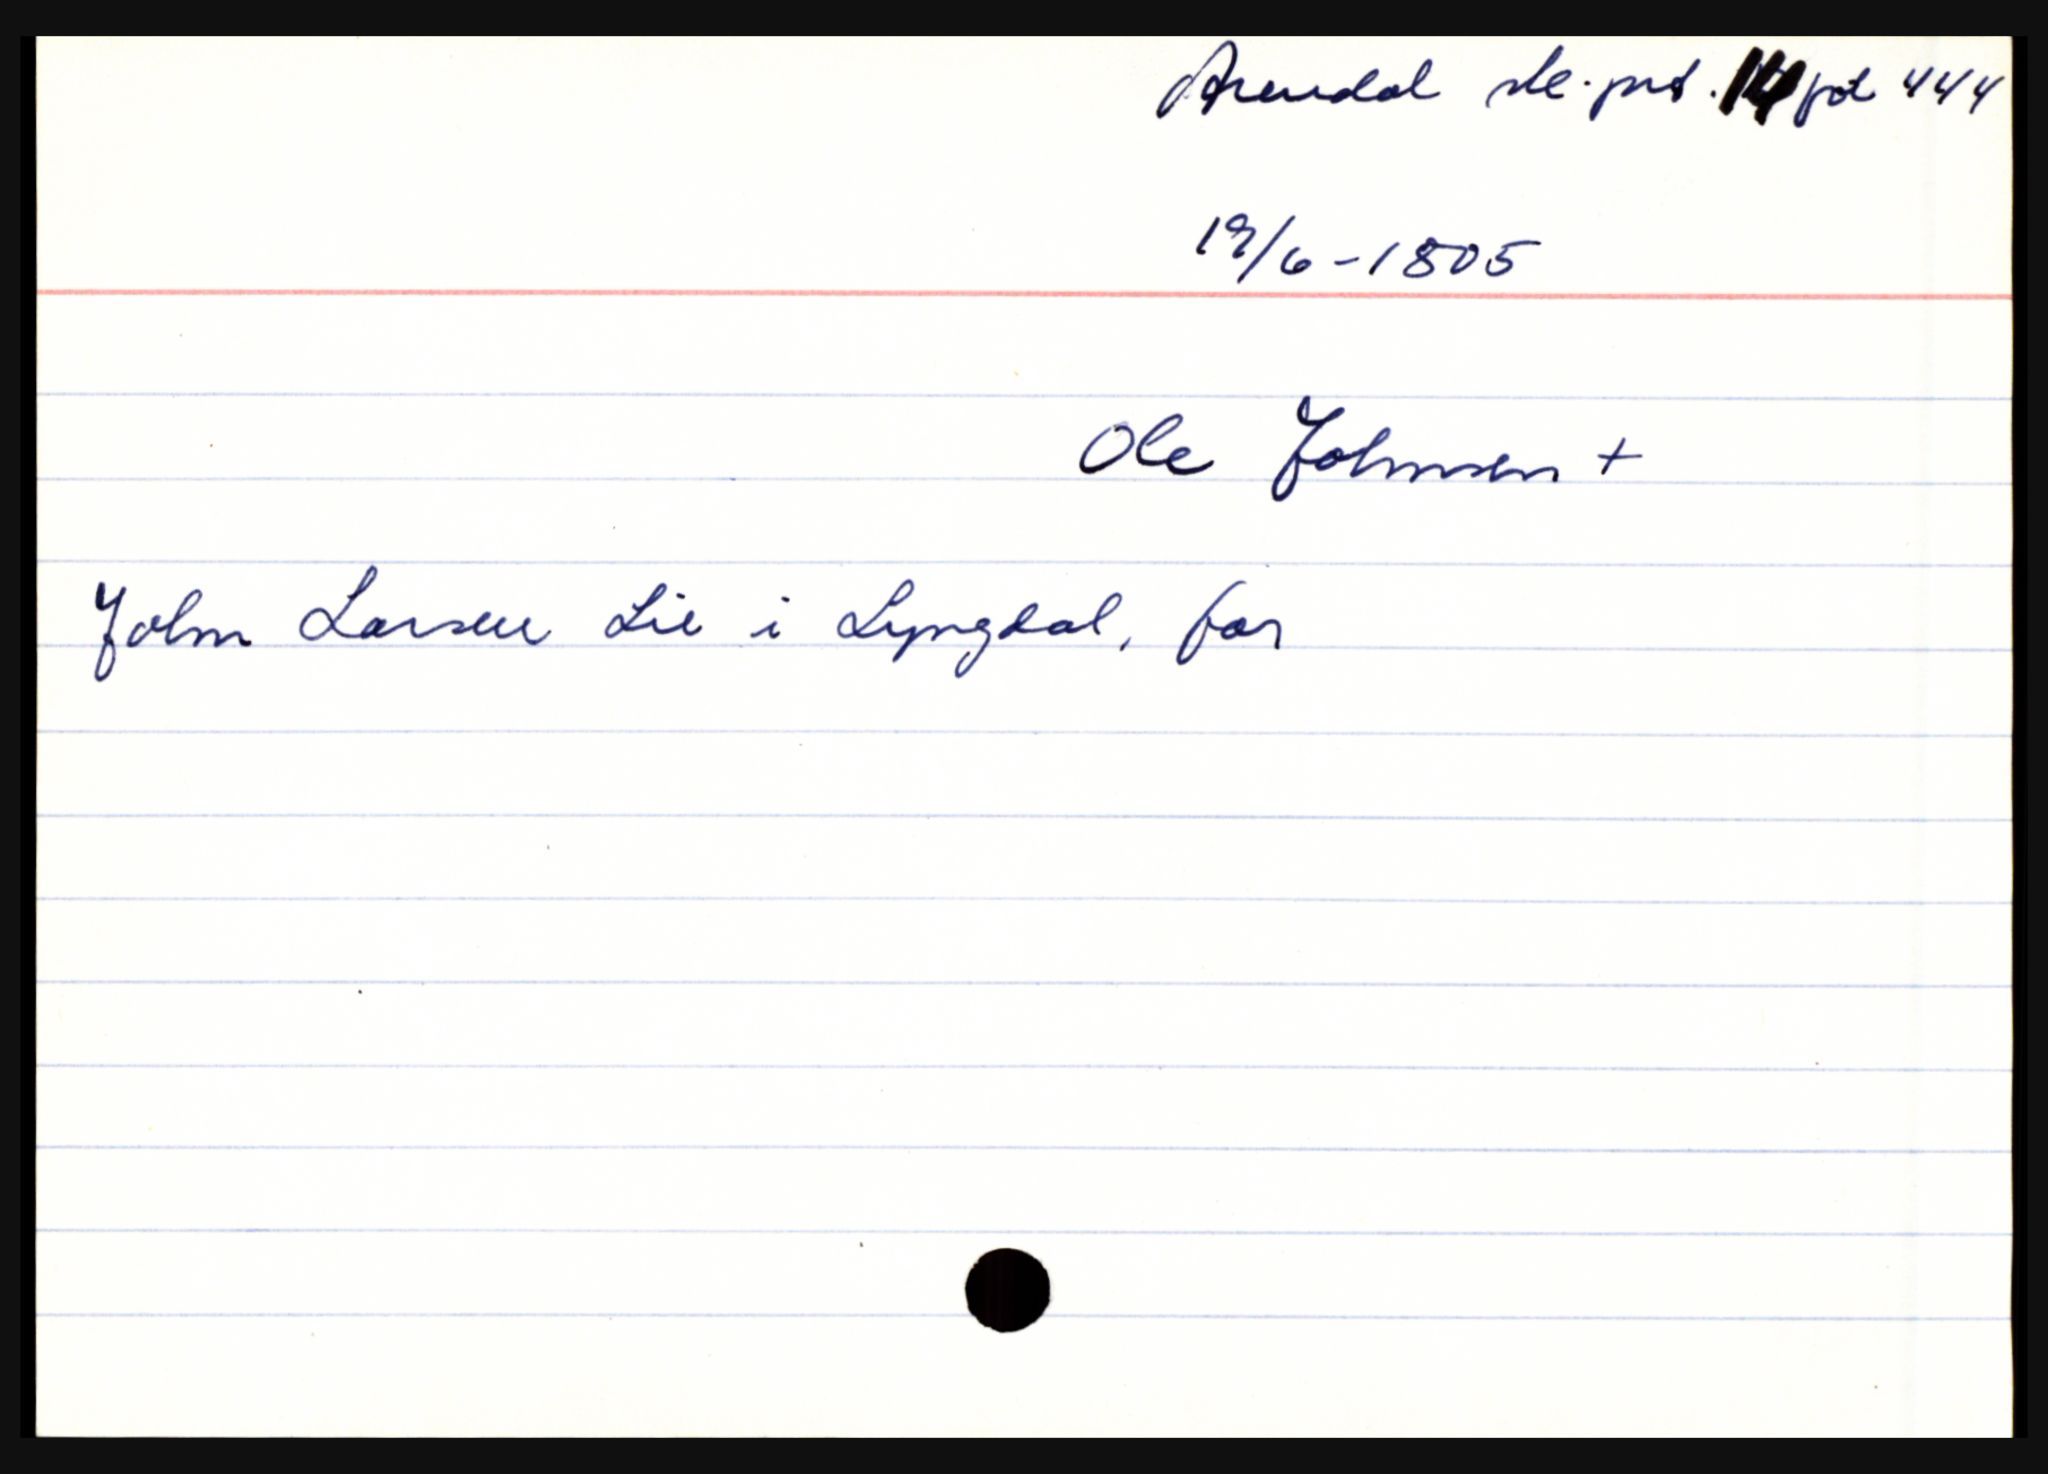 Arendal sk.prot. 14 fol 444
19/6-1805
Ole Johnsen +
John Larsen Lie i Lyngdal, far